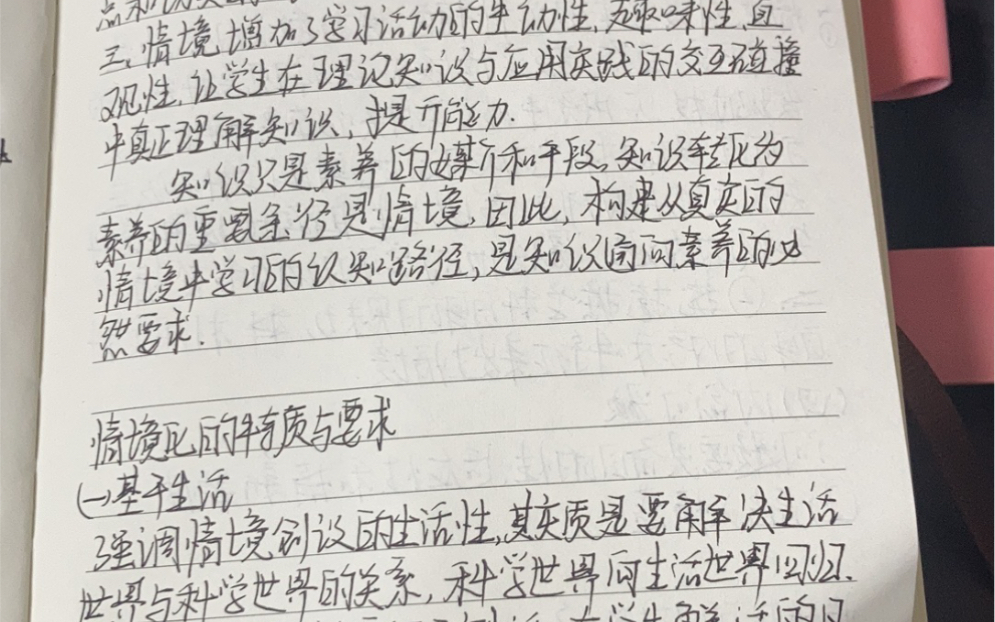 三、情境增加了学习活动的生动性,趣味性,直
观性,让学生在理论知识与应用实践的交互碰撞
中真正理解知识,提升能力.
知识只是素养的媒介和手段。知识转化为
素养的重要途径是情境,因此,构建从真实的
情境中学习的认知路径,是知识固向素养的必
然要求.
情境化的特质与要求
(一)基于生活
强调情境创设的生活性,其实质是要解决生活
世界与科学世界的关系,科学世界向生活世界回归.